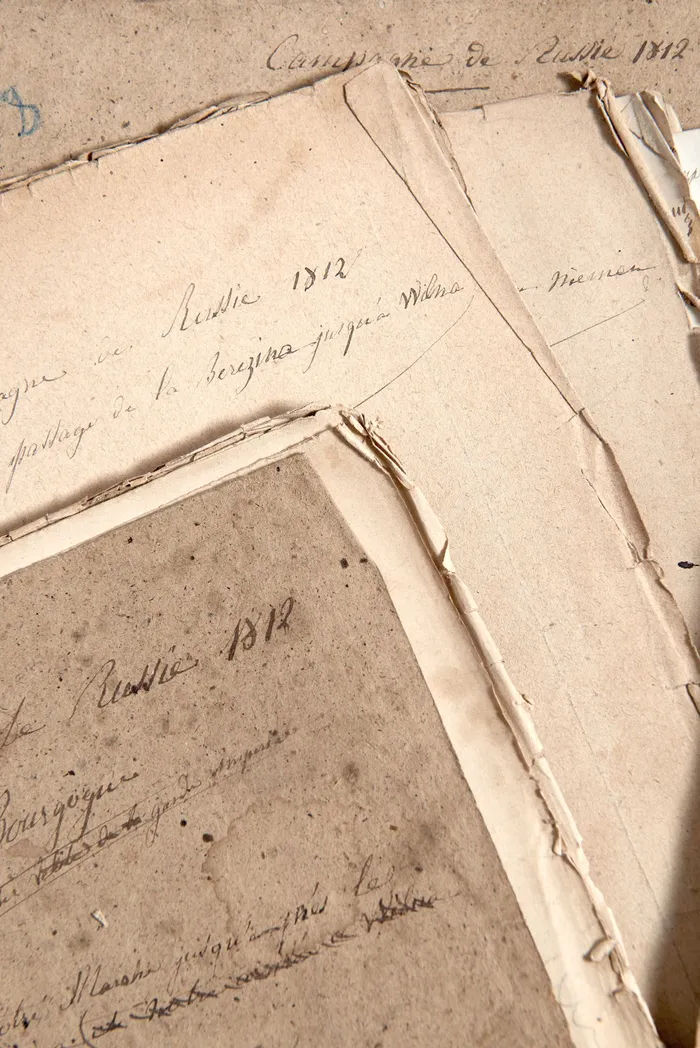 Campagne de Russie 1812
agne de Russie 1812
passage de la Berezina jusqu'à Wilna
Niemen
de Russie 1812
Bourgogne
vélites de la garde impériale
Marche jusqu'après le
notre arrivée a Wilna